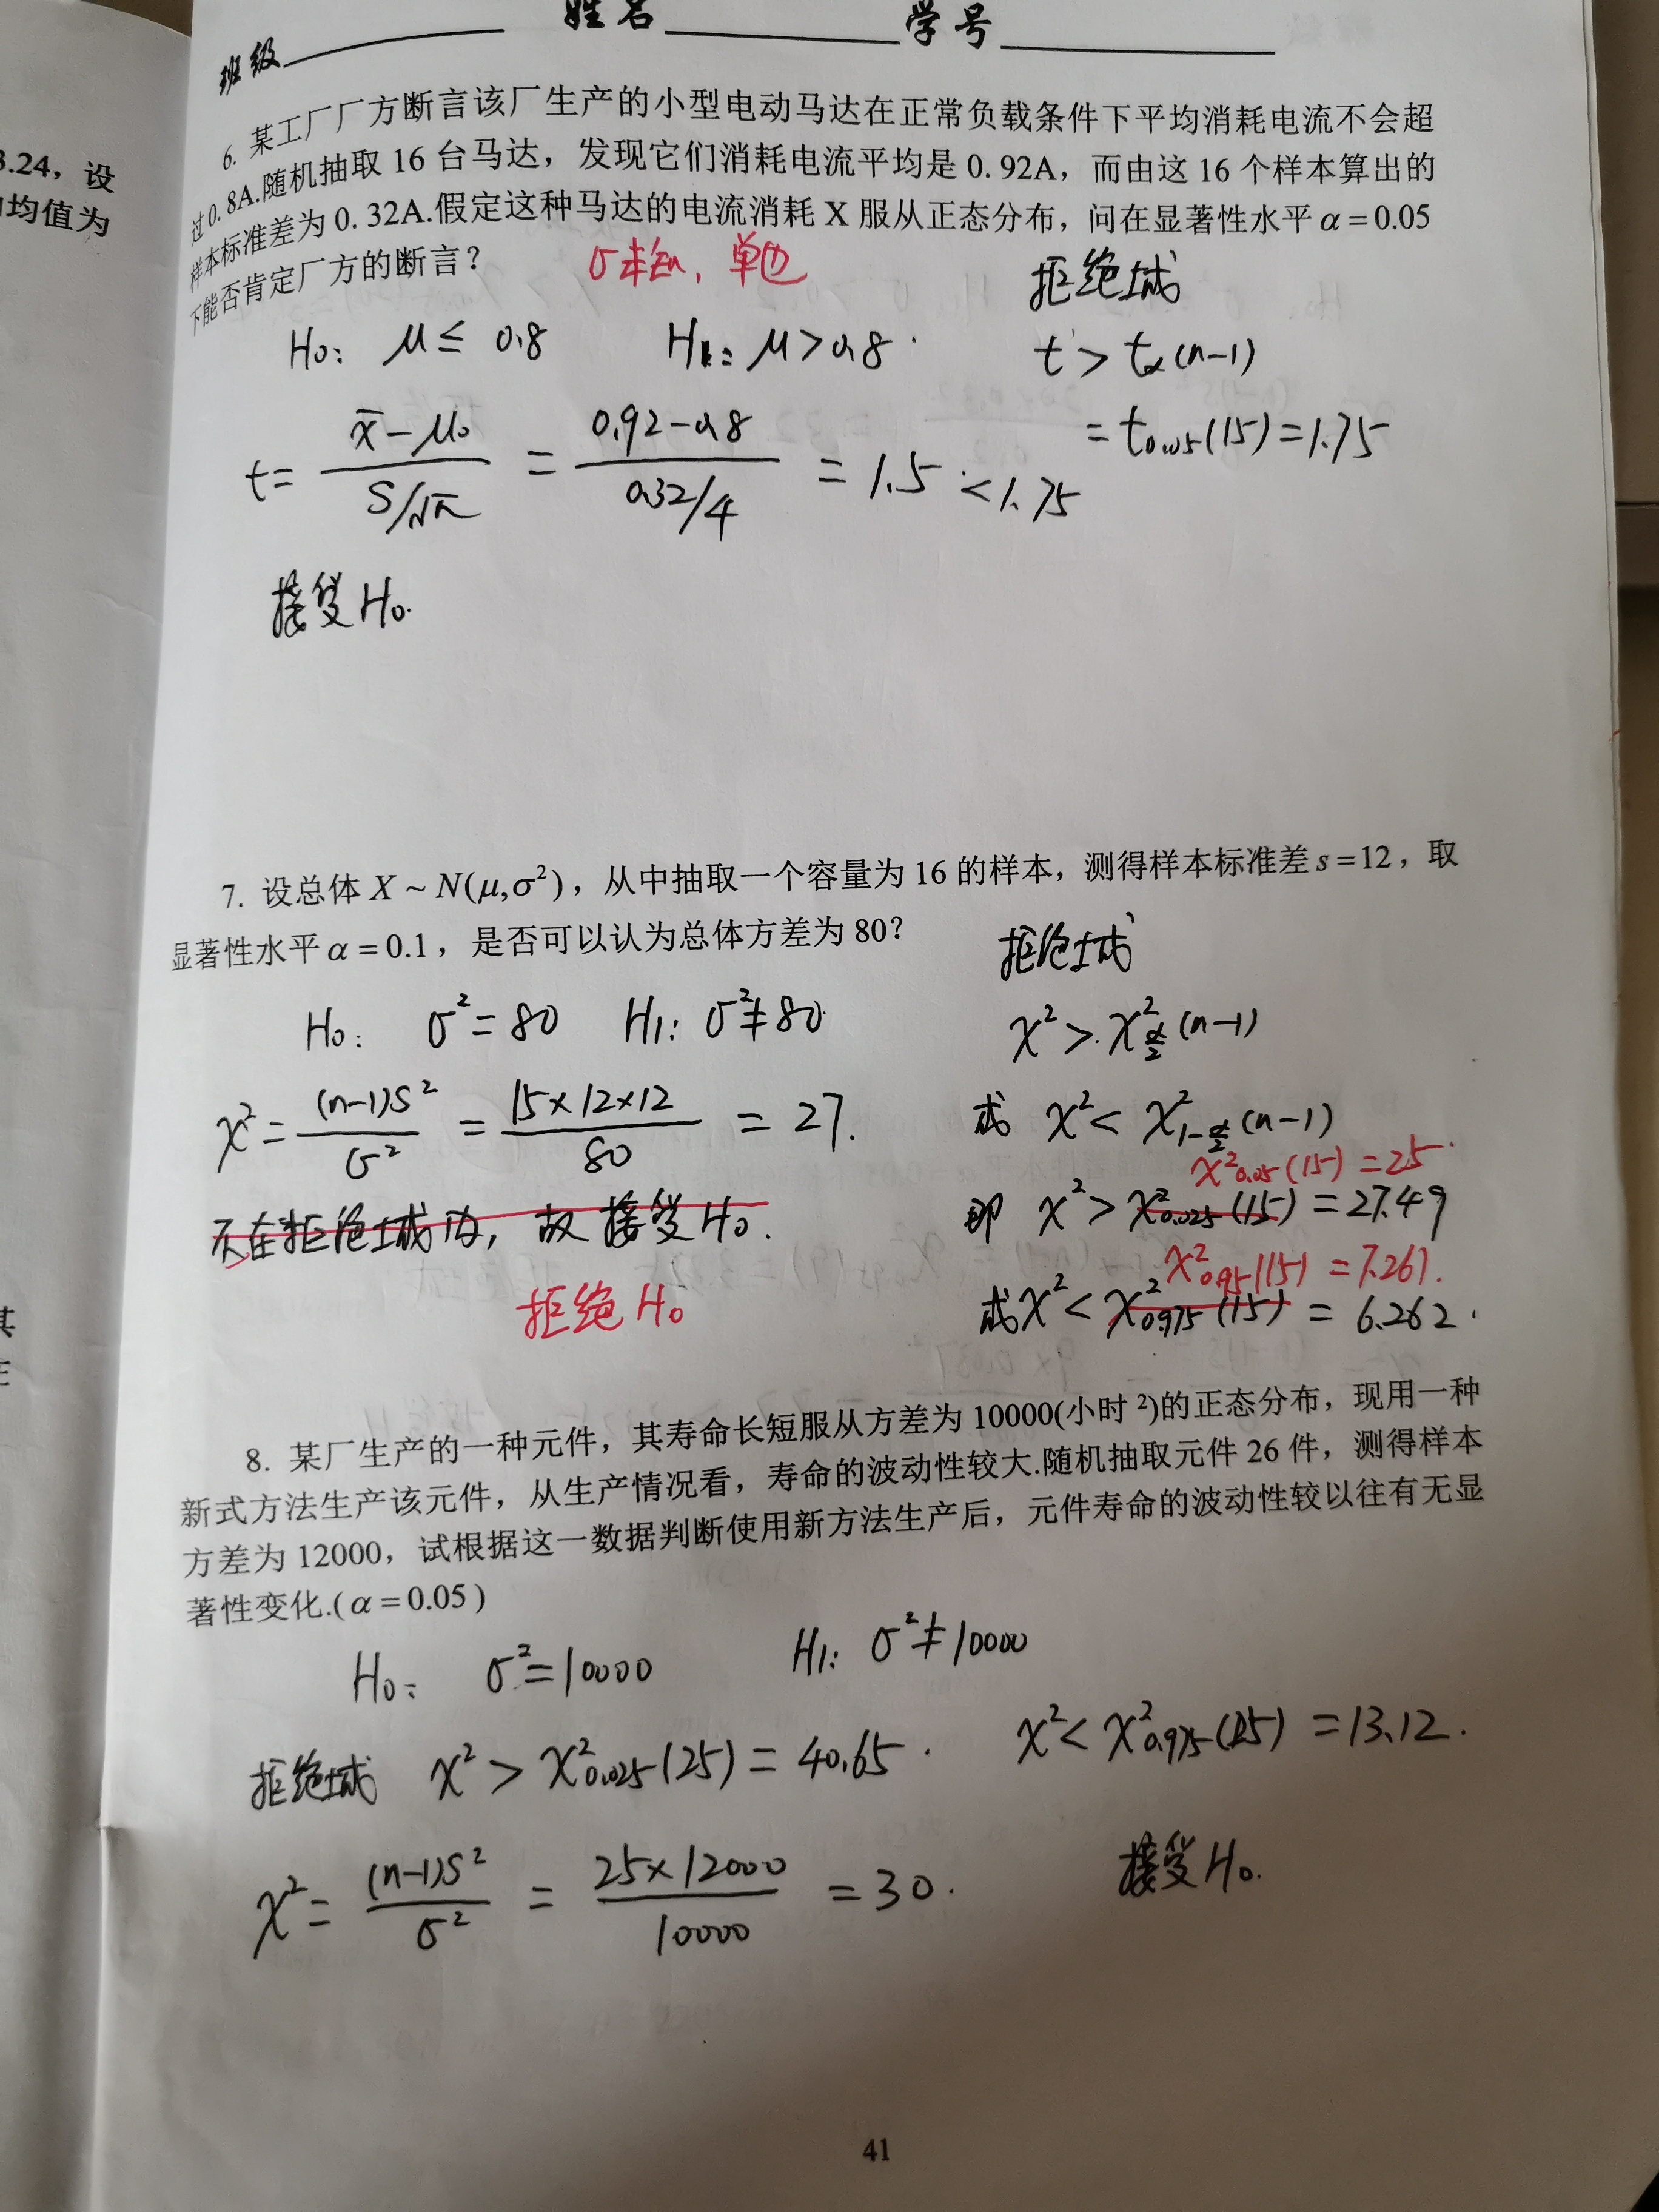 班级 姓名 学号
3.24，设
均值为
6. 某工厂厂方断言该厂生产的小型电动马达在正常负载条件下平均消耗电流不会超
过0.8A.随机抽取 16 台马达，发现它们消耗电流平均是 0.92A，而由这 16 个样本算出的
样本标准差为 0.32A.假定这种马达的电流消耗 X 服从正态分布，问在显著性水平 α=0.05
下能否肯定厂方的断言？ σ未知，单边 拒绝域
H₀： μ≤ 0.8 H₁： μ>0.8 . t > tα(n-1)
= t0.05(15)=1.75
t= (x̄-μ₀)/(S/√n) = (0.92-0.8)/(0.32/4) = 1.5 <1.75
接受H₀.
7. 设总体 X ~ N(μ,σ²)，从中抽取一个容量为 16 的样本，测得样本标准差 s=12，取
显著性水平 α=0.1，是否可以认为总体方差为 80？ 拒绝域
H₀： σ²=80 H₁: σ²≠80 χ²>χ²α/2(n-1)
χ²= (n-1)S²/σ² = 15×12×12/80 = 27. 或 χ²<χ²1-α/2(n-1)
χ²0.05(15)=25.
不在拒绝域内，故接受H₀. 即 χ²>χ²0.025(15)=27.49
χ²0.95(15)=7.261.
拒绝H₀ 或χ²<χ²0.975(15)=6.262.
8. 某厂生产的一种元件，其寿命长短服从方差为 10000(小时²)的正态分布，现用一种
新式方法生产该元件，从生产情况看，寿命的波动性较大.随机抽取元件 26 件，测得样本
方差为 12000，试根据这一数据判断使用新方法生产后，元件寿命的波动性较以往有无显
著性变化.(α=0.05)
H₀： σ²=10000 H₁: σ²≠10000
拒绝域 χ²>χ²0.025(25)=40.65. χ²<χ²0.975(25)=13.12.
χ²= (n-1)S²/σ² = 25×12000/10000 =30. 接受H₀.
41